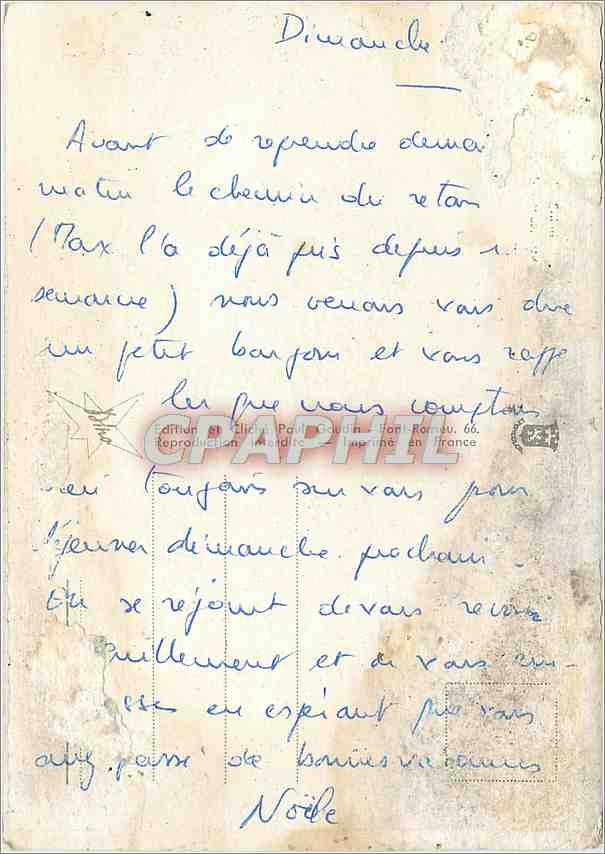 Dimanche
Avant de reprendre demai
matin le chemin du retour
(Max l'a déjà pris depuis 1
semaine) nous venons vous dire
un petit bonjour et vous rappe
ler que nous comptons
Edition et Cliché Paul Gaudin - Font-Romeu. 66.
Reproduction Interdite - Imprimé en France
CPAPHIL
toujours sur vous pour
déjeuner dimanche prochain.
On se réjouit de vous revoir
et de vous
en espérant que vous
avez passé de bonnes vacances
Noële